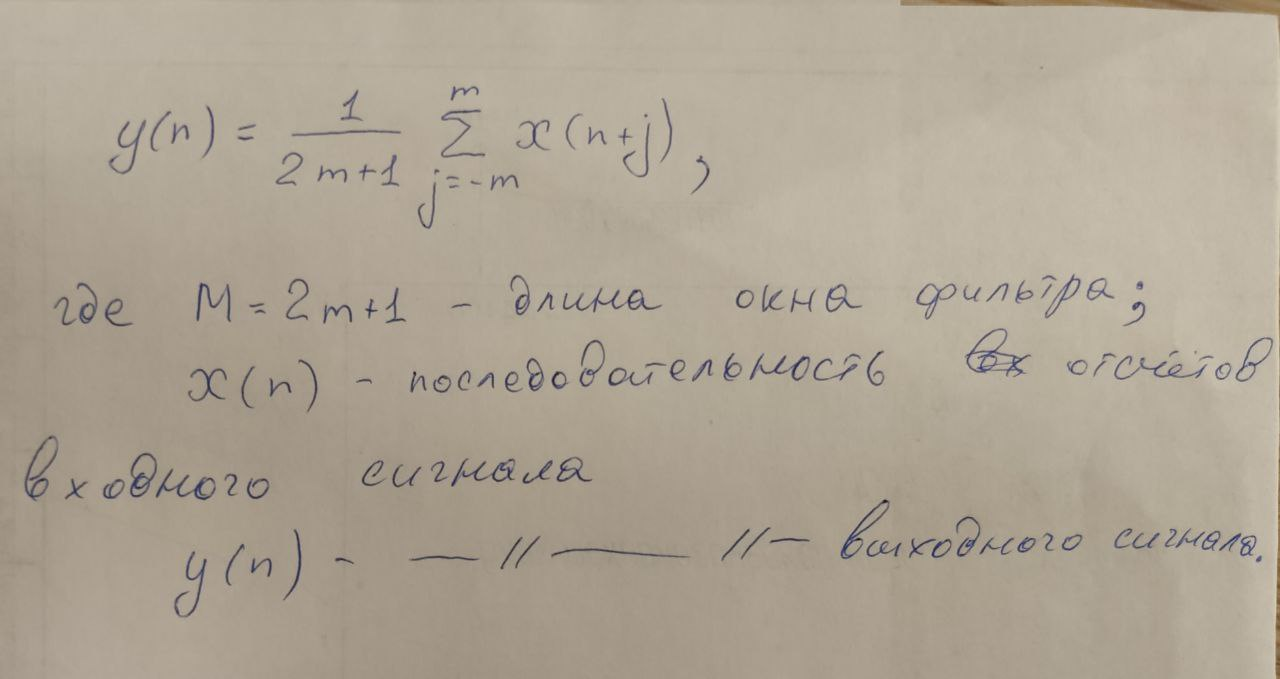 y(n) = \frac{1}{2m+1} \sum_{j=-m}^{m} x(n+j),
где M = 2m+1 - длина окна фильтра;
x(n) - последовательность отсчётов
входного сигнала
y(n) - —— // ——— // — выходного сигнала.